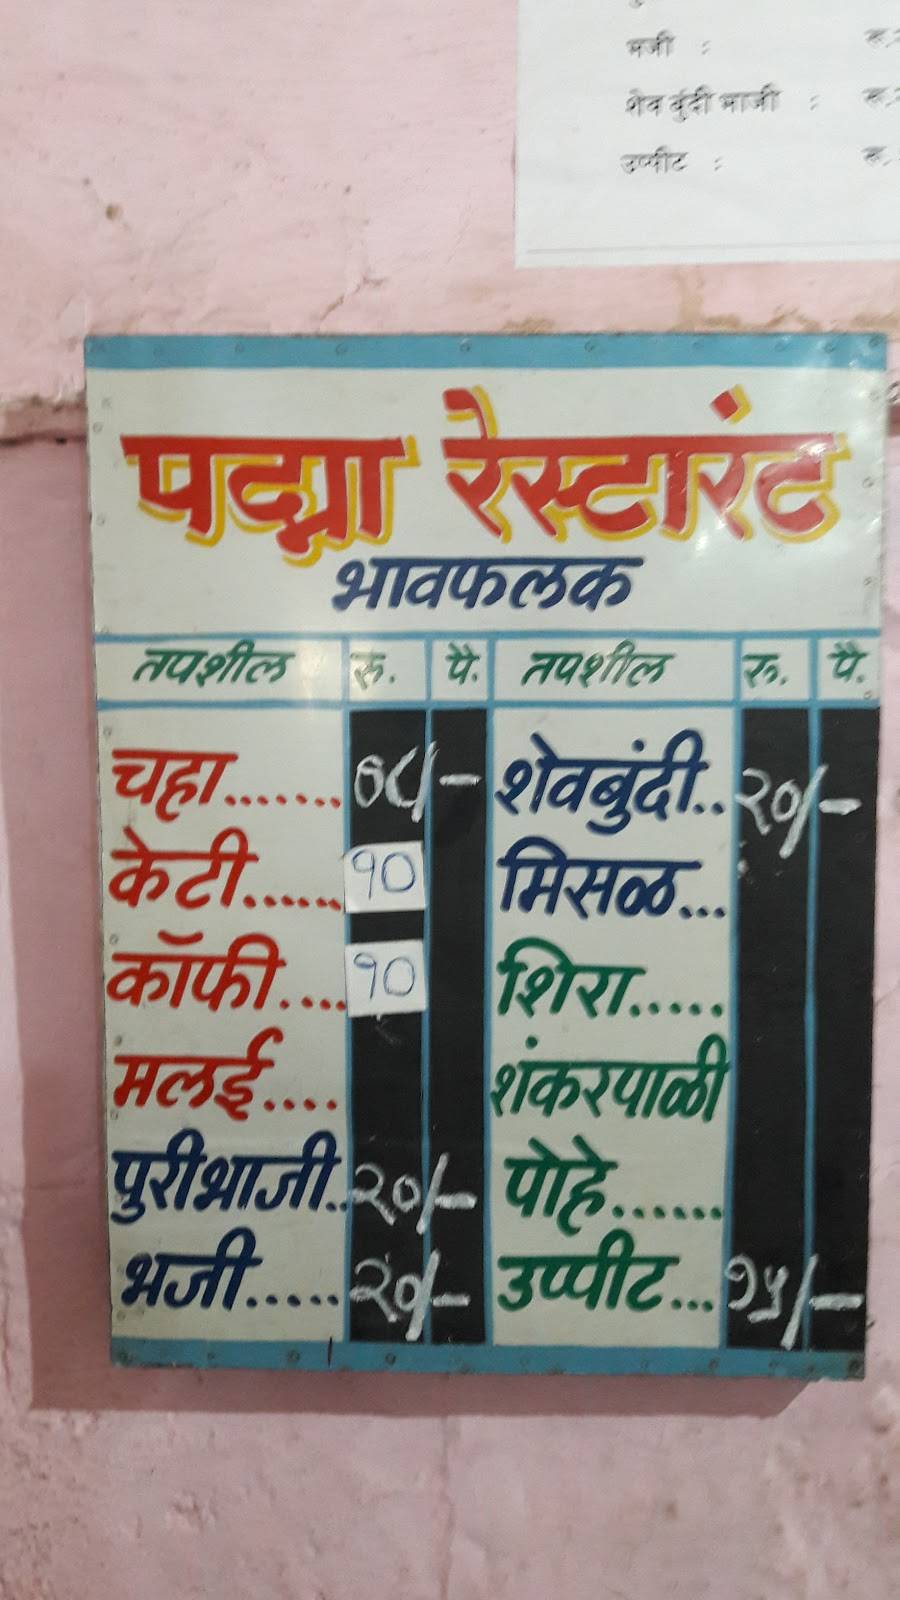 मजी : रू.
शेव बुंदी भाजी : रू.
उप्पीट : रू.
पद्मा रेस्टारंट
भावफलक
तपशील रु. पै. तपशील रु. पै.
चहा....... ०८/- शेवबुंदी.. २०/-
केटी...... १० मिसळ...
कॉफी.... १० शिरा.....
मलई.... शंकरपाळी
पुरीभाजी.. २०/- पोहे......
भजी..... २०/- उप्पीट... १५/-